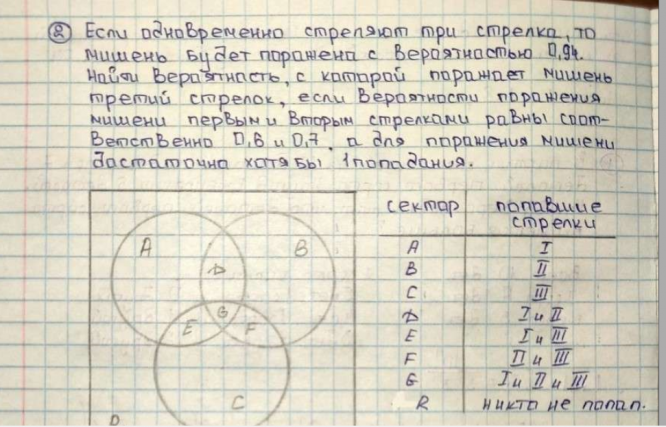 ② Если одновременно стреляют три стрелка, то
мишень будет поражена с вероятностью 0,94.
Найти вероятность, с которой поражает мишень
третий стрелок, если вероятности поражения
мишени первым и вторым стрелками равны соот-
ветственно 0,6 и 0,7, а для поражения мишени
достаточно хотя бы 1 попадания.
сектор попавшие стрелки
A I
B II
C III
D I и II
E I и III
F II и III
G I и II и III
R никто не попал.
A
B
D
G
E
F
C